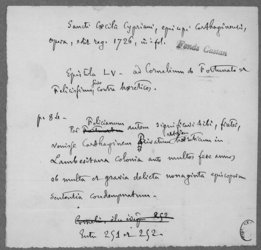 Sancti Cæcilii Cypriani, episcop. Carthaginensis,
opera, edit. reg. 1726, in-fol.
Fonds Cosson
Epistula LV. - ad Cornelium de Fortunato et
Felicissimo, contra hæreticos.
p. 84. Felicianum
tibi autem significavi tibi, frater,
venisse Carthaginem Privatum veterem hæreticum in
Lambesitana colonia ante multos fere annos
ob multa et gravia delicta nonaginta episcoporum
sententia condemnatum.
Entre 251 et 252.